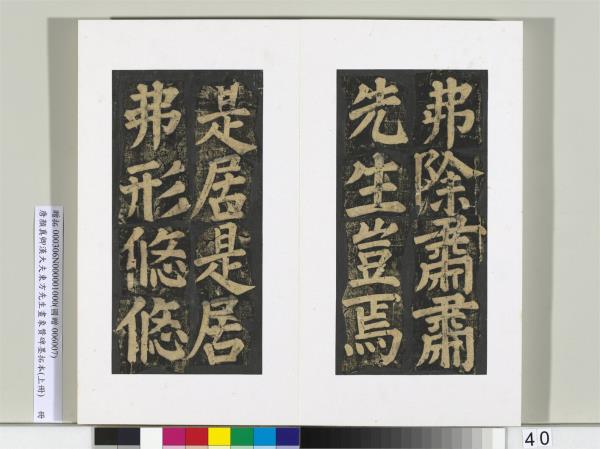 弗除肅肅
先生豈焉
是居是居
弗形悠悠
贈拓 000306N000001000(國贈 006007)
唐顏真卿漢大夫東方先生畫象贊碑墨拓本(上冊) 冊
40